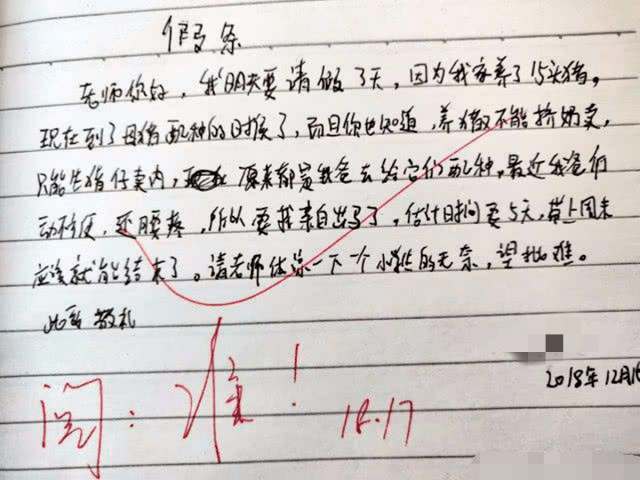 假条
老师你好，我明天要请假3天，因为我家养了15头猪。
现在到了母猪配种的时候了，而且你也知道，养猪又不能挤奶卖，
只能生猪仔卖肉，原来都是我爸去给它们配种，最近我爸行
动不便，还腰疼，所以要我亲自出马了，估计时间要5天，算上周末
应该就能结束了。请老师体谅一下一个小孩的无奈，望批准。
此致 敬礼
2018年12月16
阅：准！
18.17